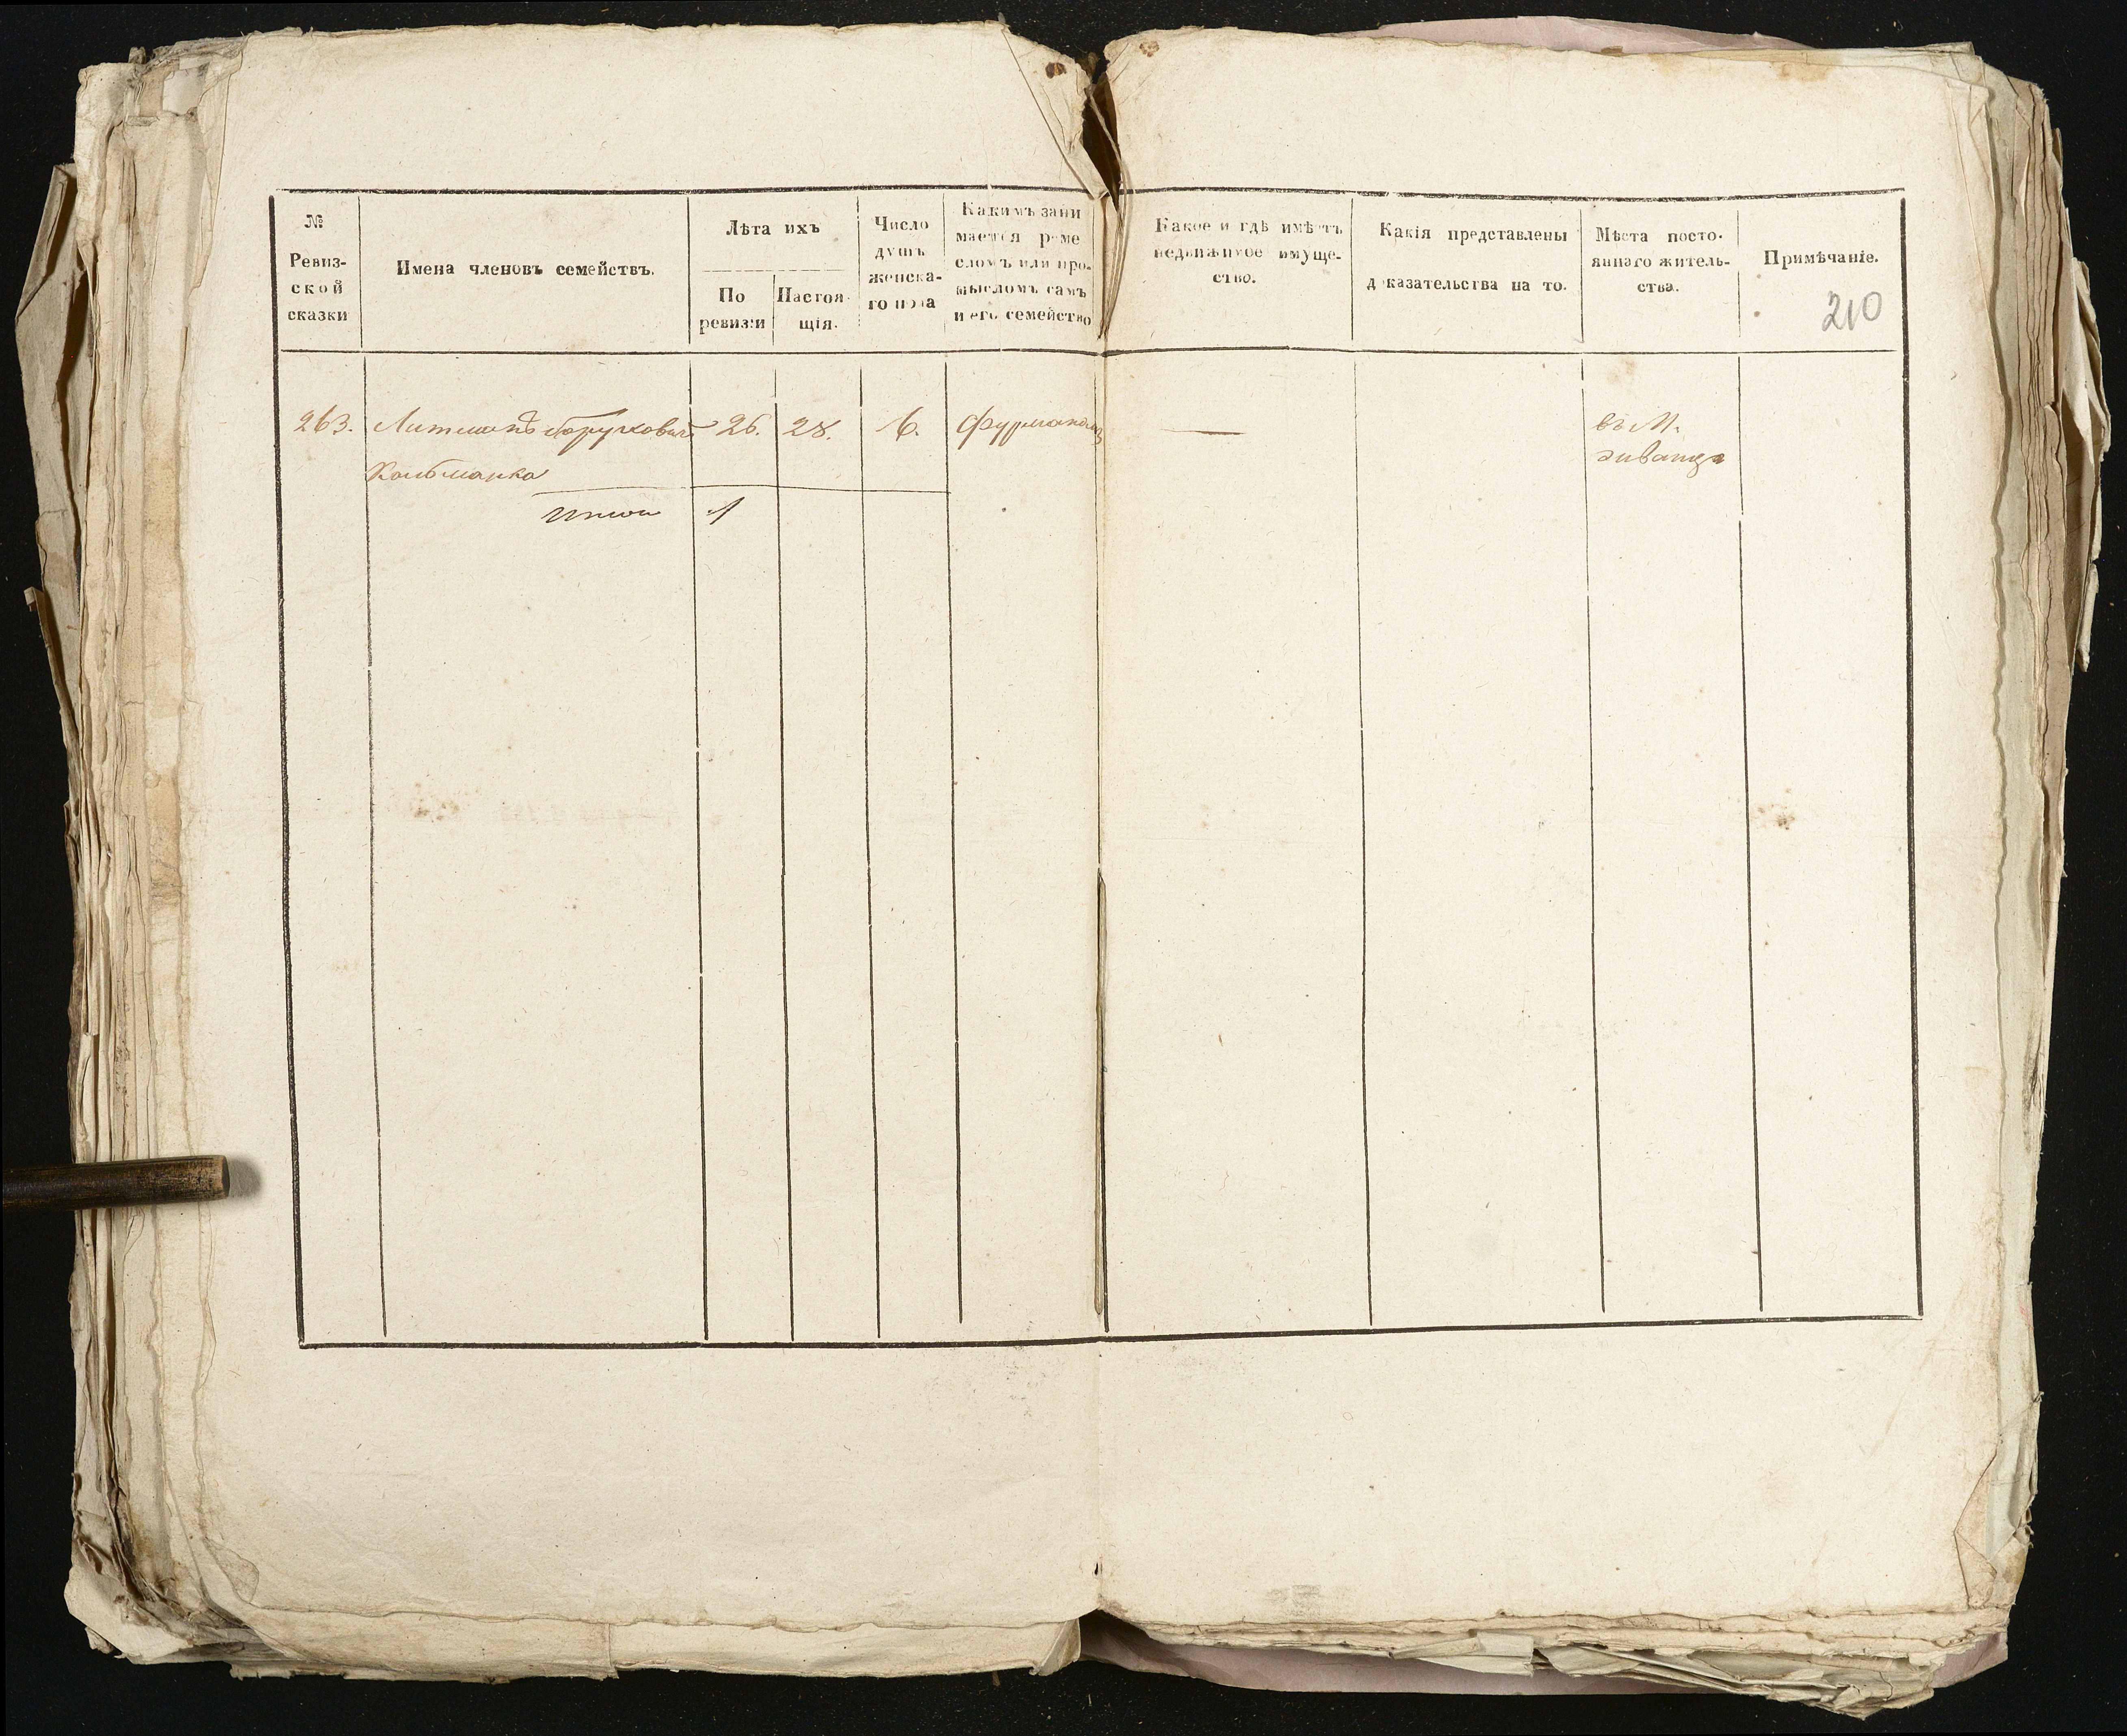 №
Ревиз-
ской
сказки
Имена членовъ семействъ.
Лѣта ихъ
По
ревизіи
Настоя-
щія.
Число
душъ
женска-
го пола
Какимъ зани
мается реме
сломъ или про-
мысломъ самъ
и его семейство
Какое и гдѣ имѣетъ
недвижимое имуще-
ство.
Какія представлены
доказательства на то.
Мѣста посто-
яннаго житель-
ства.
Примѣчаніе.
210
263. Литманъ Борухковичъ 26. 28. 6. Фурманомъ — въ М.
Кальманка
Итого 1